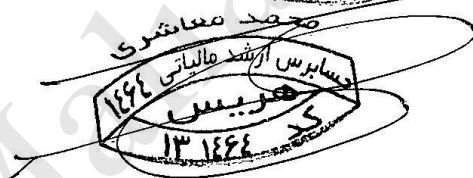 محمد معاشری
حسابرس ارشد مالیاتی ۱۴۶۴
هریس
کد ۱۳۱۴۶۴